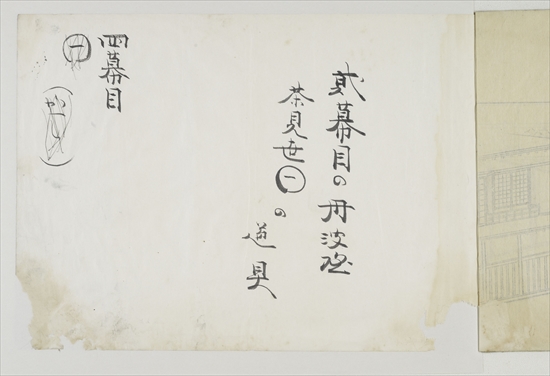 貮幕目の丹波屋
茶見世㊀の道具
四幕目
㊀